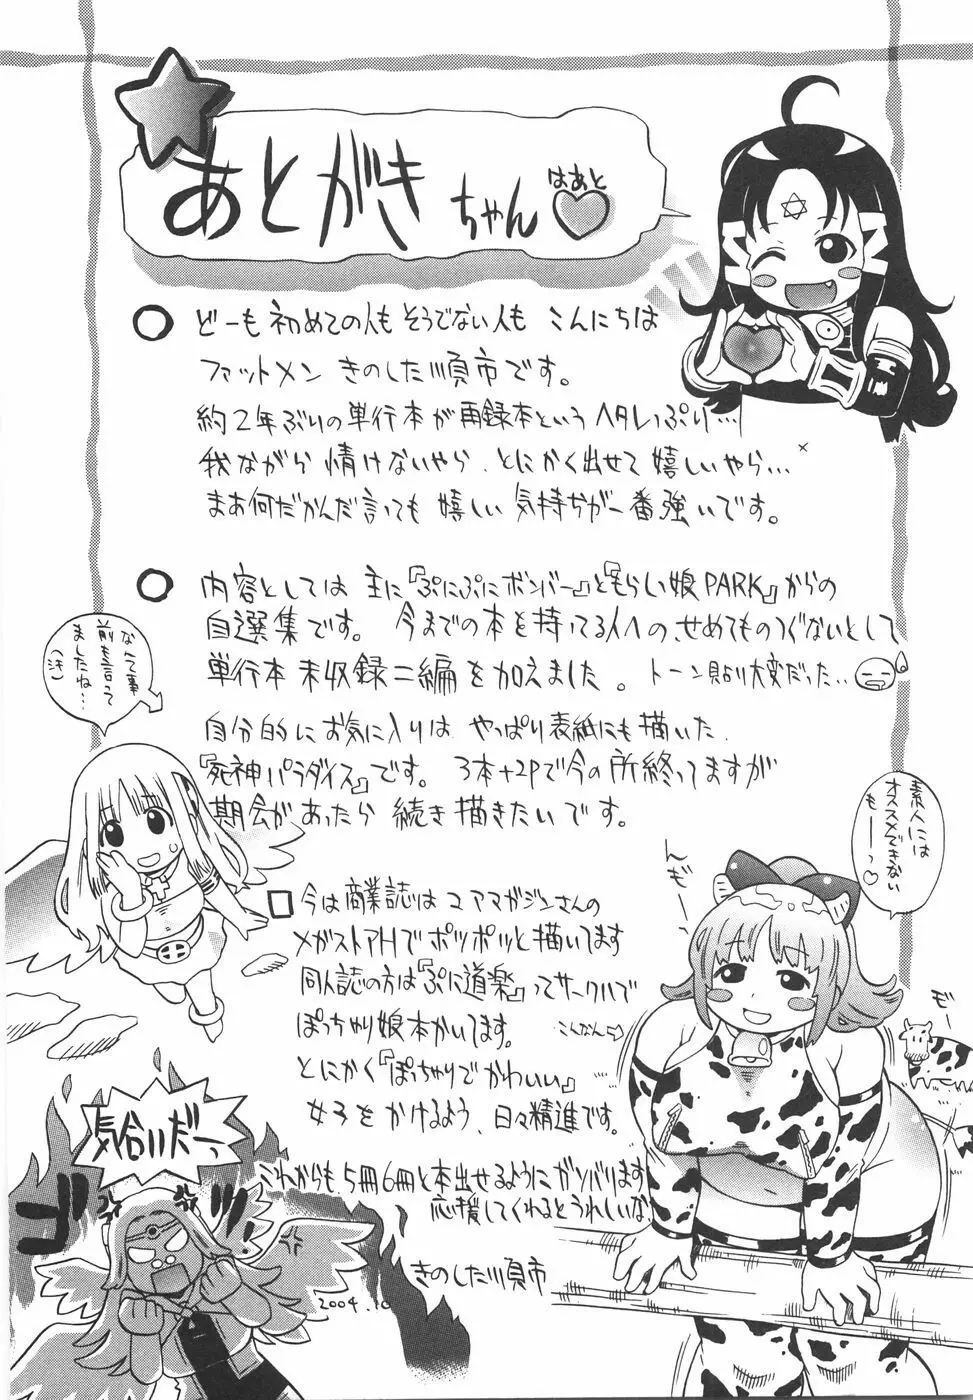 あとがきちゃん
はあと
どーも初めての人もそうでない人もこんにちは
ファットメン きのした順市です。
約2年ぶりの単行本が再録本というヘタレっぷり…
我ながら情けないやら、とにかく出せて嬉しいやら…
まあ何だかんだ言っても嬉しい気持ちが一番強いです。
内容としては主に『ぷにぷにボンバー』と『もらい娘PARK』からの
自選集です。今までの本を持ってる人への、せめてものつぐないとして
単行本未収録二編を加えました。トーン貼り大変だった…
なんて事
前も言って
ましたね…
(汗)
自分的にお気に入りは やっぱり表紙にも描いた
『死神パラダイス』です。3本+2Pで今の所終ってますが
期会があったら続き描きたいです。
素人には
オススメできない
もーーっ♡
んぎー
んぎー
モ"ー
今は商業誌はコアマガジンさんの
メガストアHでポツポツと描いてます
同人誌の方は『ぷに道楽』ってサークルで
ぽっちゃり娘本かいてます。
こんなん⇨
とにかく『ぽっちゃりでかわいい』
女子をかけるよう、日々精進です。
これからも5冊6冊と本出せるようにガンバリます
応援してくれるとうれしいな
きのした順市
気合いだーっ
ゴゴ
2004.10